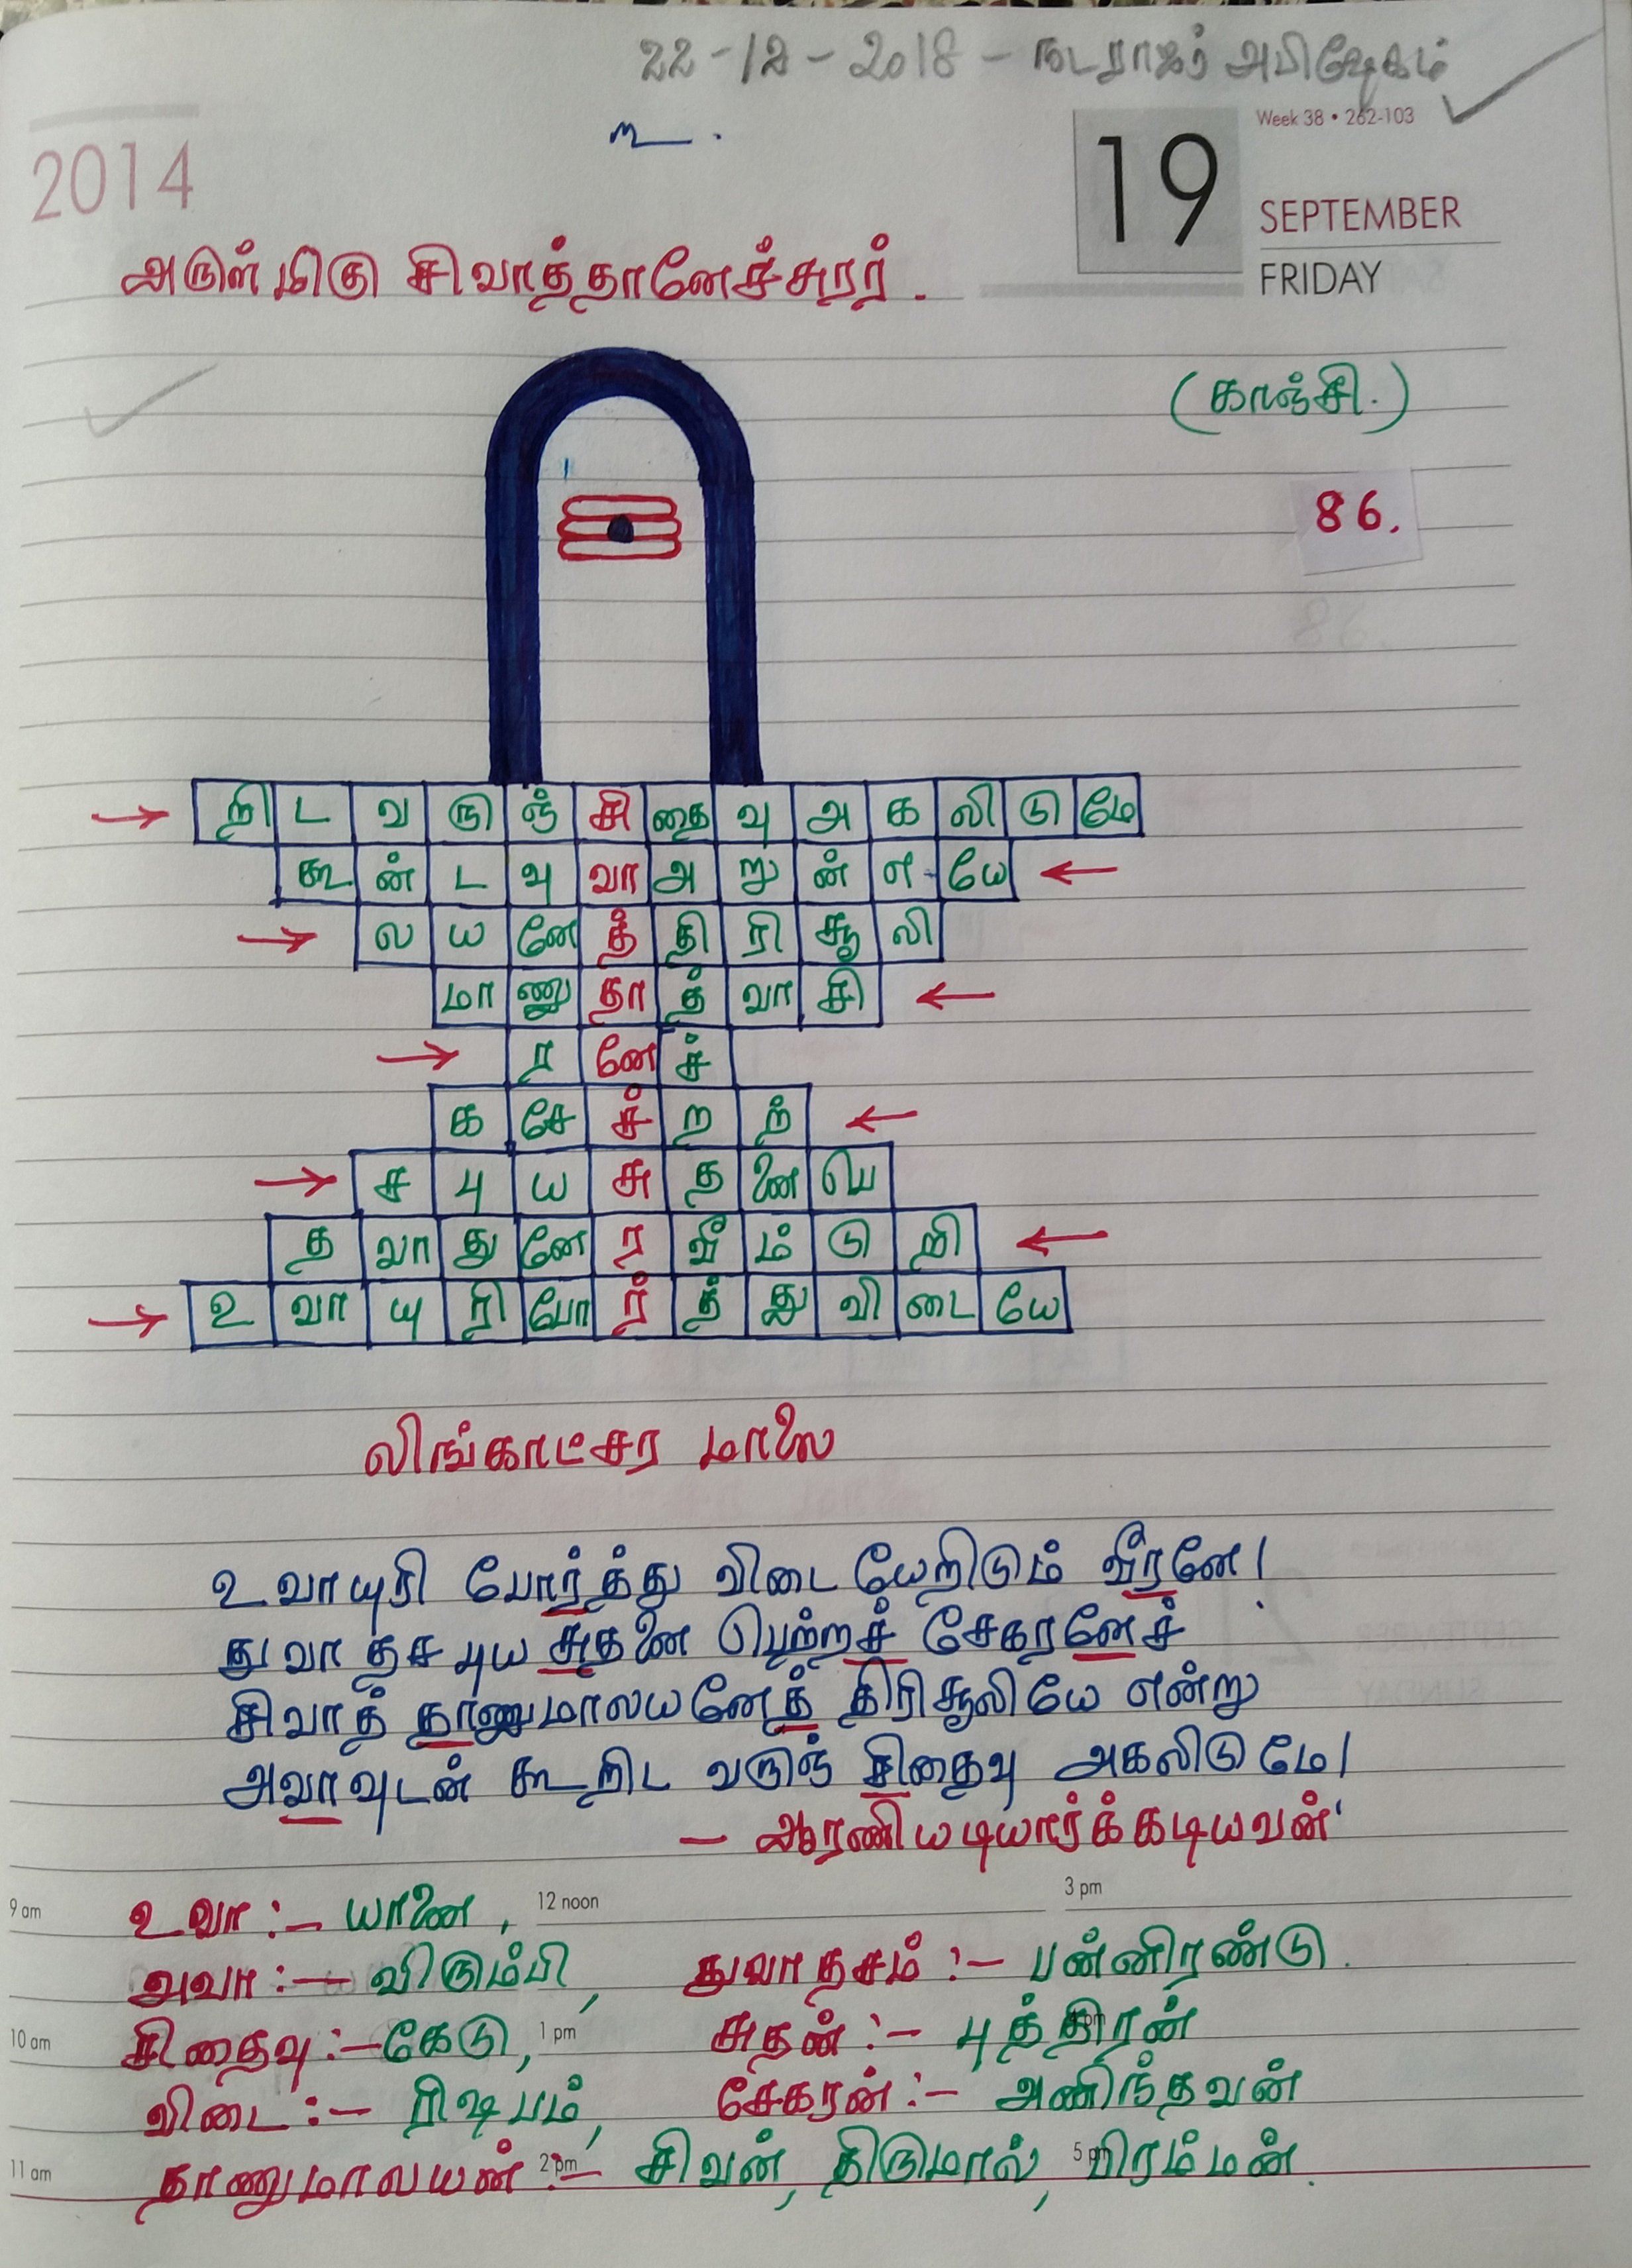 22-12-2018 - நடராஜர் அபிஷேகம்
Week 38 • 262-103
2014
19
SEPTEMBER
FRIDAY
அருள்மிகு சிவாத்தானேச்சுரர்.
(காஞ்சி.)
86.
றி ட வ ரு ஞ் சி தை வு அ க லி டு மே
கூ ன் ட வு வா அ று ன் எ யே
ல ய னே த் தி ரி சூ லி
மா ணு தா த் வா சி
ர னே ச்
க சே ச் ற ற்
ச பு ய சு த னை பெ
த வா து னே ர வீ ம் டு றி
உ வா யு ரி போ ர் த் து வி டை யே
லிங்காட்சர மாலை
உவாயுரி போர்த்து விடை யேறிடும் வீரனே!
துவாதச புய சுதனை பெற்றச் சேகரனேச்
சிவாத் தாணுமாலயனேத் திரிசூலியே என்று
அவாவுடன் கூறிட வருஞ் சிதைவு அகலிடுமே!
- ஆரணியடியார்க்கடியவன்
9 am 12 noon 3 pm
உவா :- யானை,
அவா :- விரும்பி, துவாதசம் :- பன்னிரண்டு.
10 am 1 pm pm
சிதைவு :- கேடு, சுதன் :- புத்திரன்
விடை :- ரிஷபம், சேகரன் :- அணிந்தவன்
11 am 2 pm 5 pm
தாணுமாலயன் :- சிவன், திருமால், பிரம்மன்.